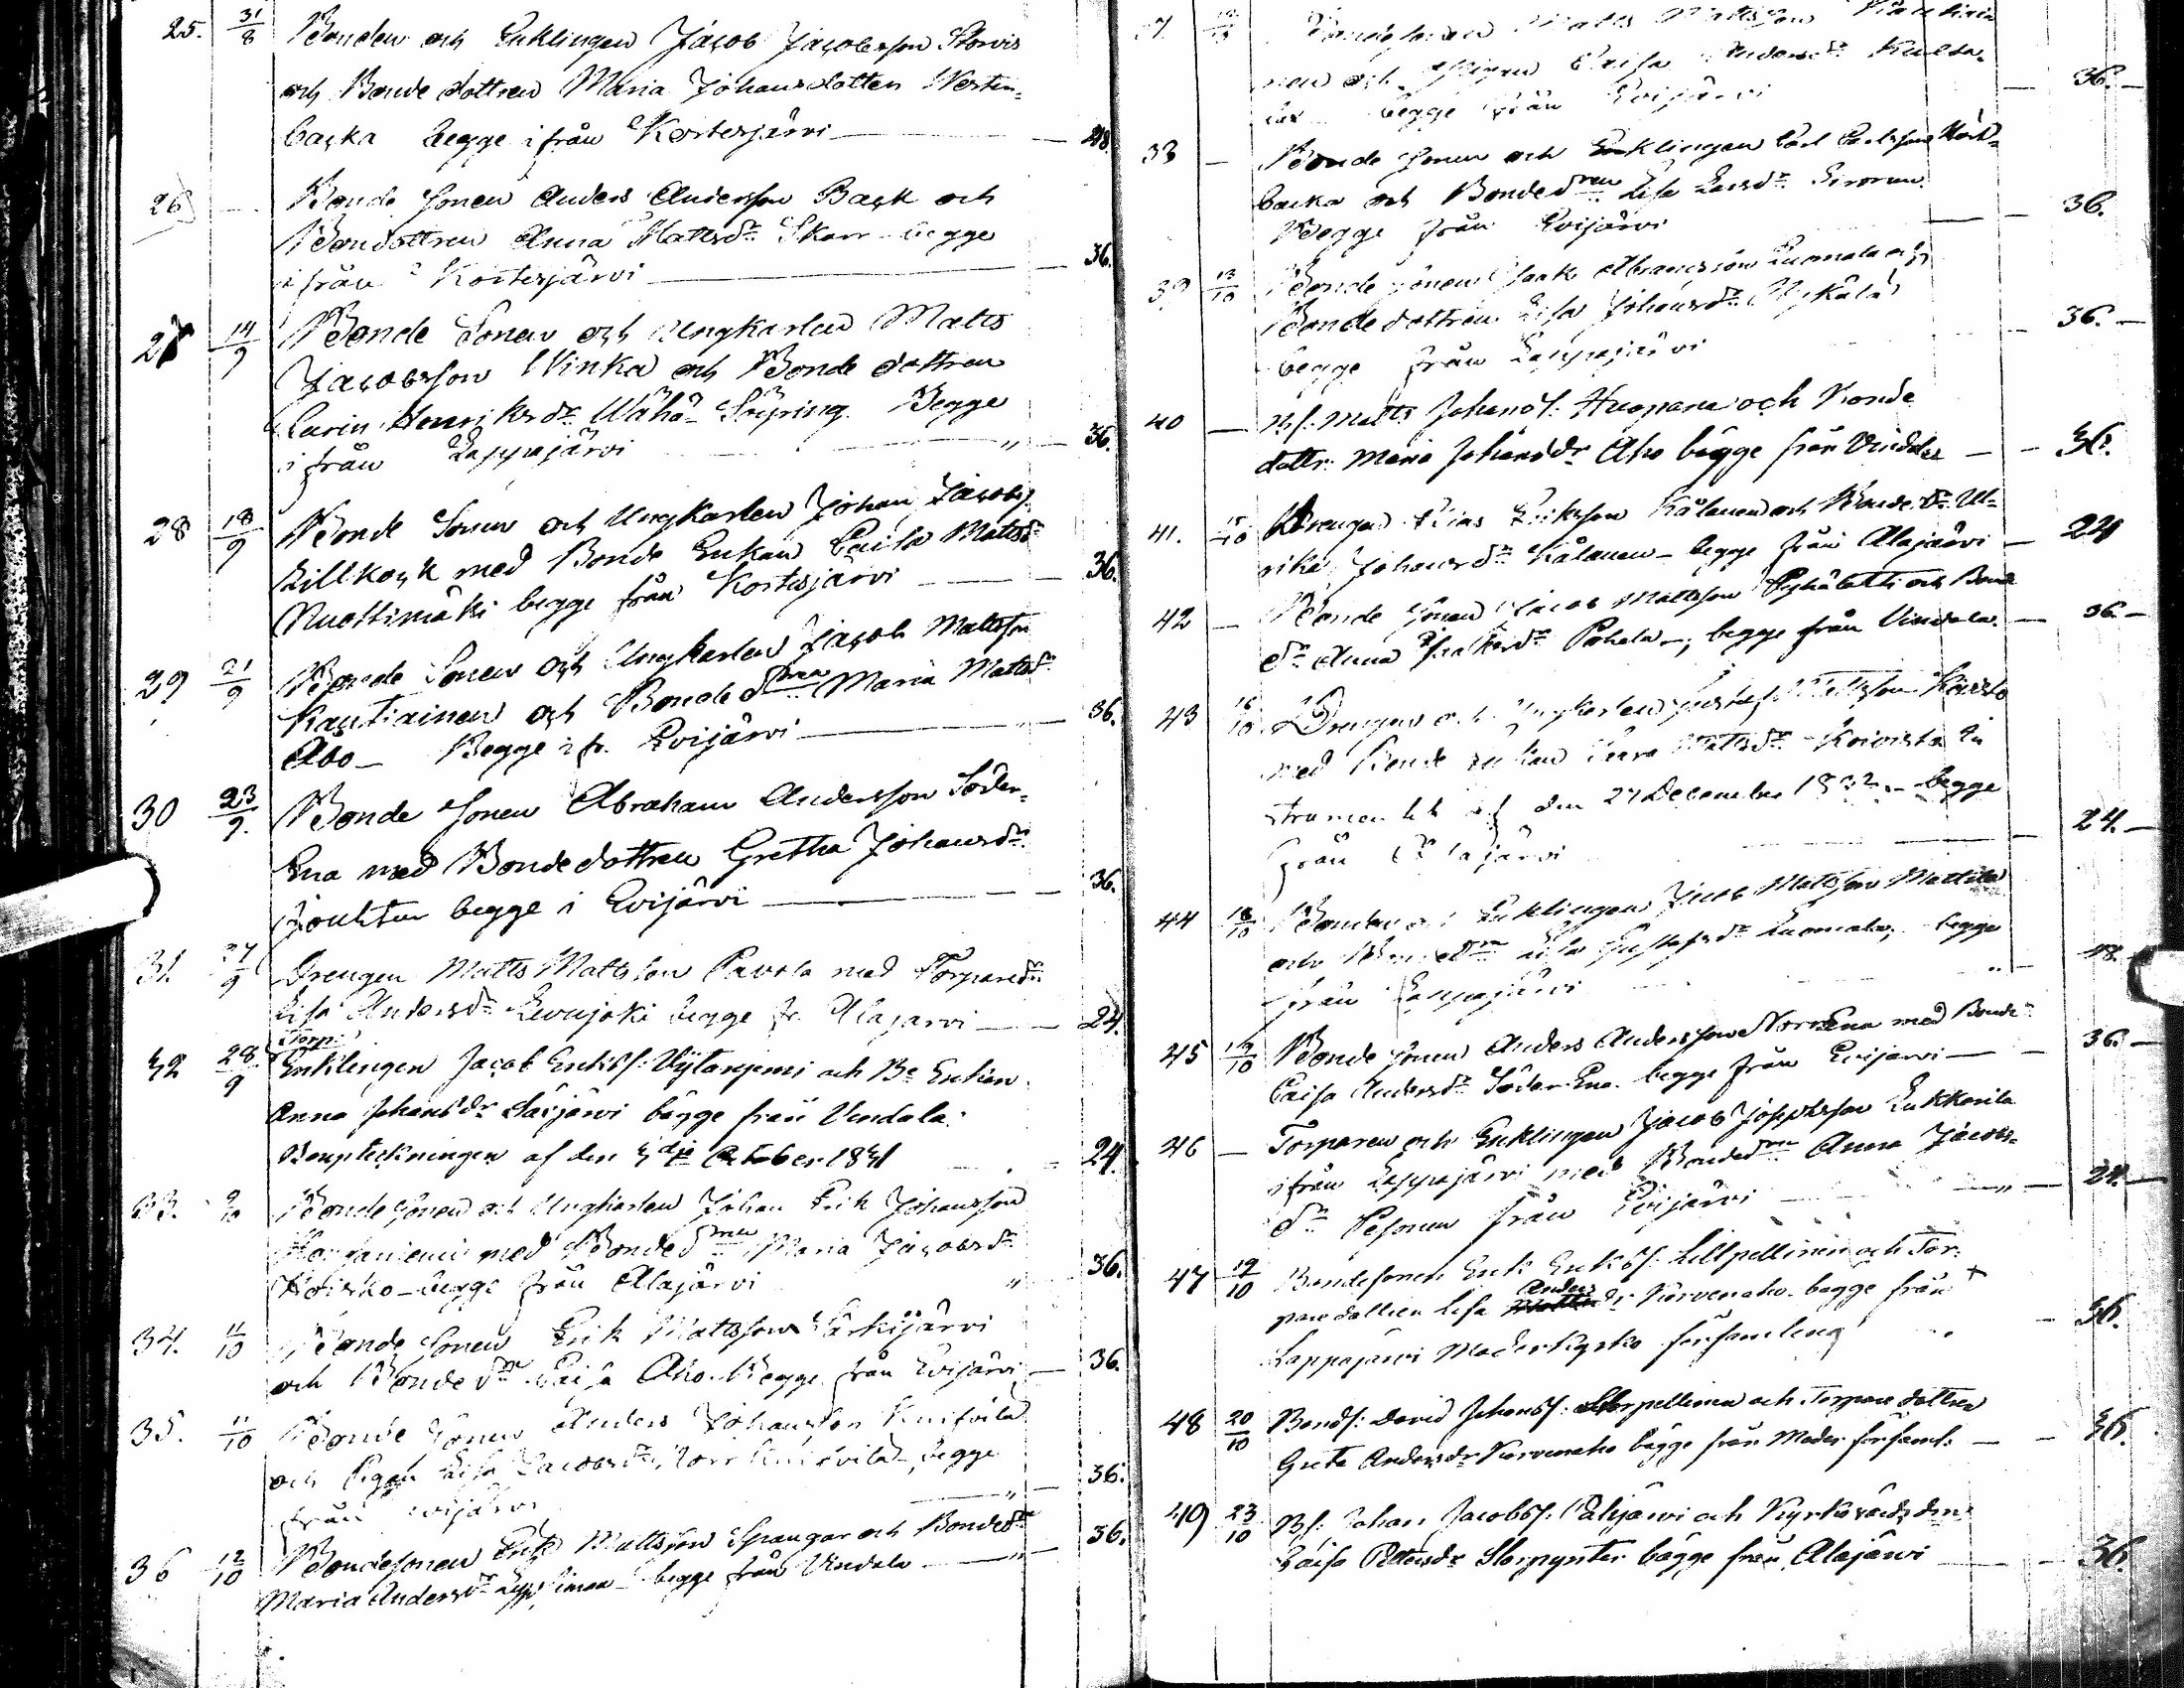 25. 31/8 Bonden och Enklingen Jacob Jacobsson Storvis
och Bonde dottren Maria Johansdotter Wester=
backa begge ifrån Kortesjärvi — 48.
26 — Bonde Sonen Anders Andersson Back och
Bondottren Anna Mattsdr Skarr begge
ifrån Kortesjärvi — 36.
27 14/9 Bonde Sonen och Ungkarlen Matts
Jacobsson Winka och Bonde dottren
Carin Henriksdr Wähä Söyring Begge
ifrån Lappajärvi " — 36.
28 18/9 Bonde Sonen och Ungkarlen Johan Jacobs.
Lillkock med Bonde Enkan Caisa Mattsdr
Ruottimäki begge från Kortesjärvi — 36.
29 21/9 Bonde Sonen och Ungkarlen Jacob Mattsson
Kautiainen och Bonde dren Maria Mattsdr
Abo — Begge ifr. Evijärvi — 36.
30 23/9. Bonde Sonen Abraham Andersson Söder=
Ena med Bondedottren Gretha Johansdr
Jouhten begge i Evijärvi — 36.
31. 27/9 Drengen Matts Mattsson Pavola med Torparedr
Lisa Andersdr Levujoki begge fr. Alajärvi — 24.
Torp:
32 28/9 Enklingen Jacob Eriksf: Wytaniemi och Be Enkan
Anna Johansdr Savjärvi bägge från Vindala.
Bouptekningen af den 3dje October 1831 — 24.
33. 9/10 Bonde Sonen och Ungkarlen Johan Erik Johansson
Harjuniemi med Bonde dren Maria Jacobsdr
Hoisko — begge från Alajärvi " 36.
34. 11/10 Bonde Sonen Erik Mattsson Särkijärvi
och Bonde dr Caisa Aho. Begge från Evijärvi — 36.
35. 11/10 Bonde Sonen Anders Johansson Knifvila
och Pigan Lisa Jacobsdr Norr Knifvila, begge
från Evijärvi — " — 36.
36 12/10 Bondesonen Erik Mattsson Spangar och Bondedr
Maria Andersdr begge från Vindala — " — 36.
37. Bondesonen Matts Mattsson
nen och Pigan Caisa Andersdr
begge från Evijärvi — 36. —
38 — Bonde Sonen och Enklingen Carl Carlsson
backa och Bondedren Lisa Larsdr
Begge från Evijärvi — 36.
39 13/10 Bonde Sonen Isaak Abramsson Luomala och
Bonde dottren Lisa Johansdr Nykälä
begge från Lappajärvi — 36. —
40 — Bf. Matts Johansf: Huopana och Bonde
dottr: Maria Johansdr Aho bägge från Vindala — 36.
41. 15/10 Drengen Elias Eriksson Kålanen och Bonde dr Ul=
rika Johansdr Kålanen — begge från Alajärvi — 24
42 — Bonde Sonen Jacob Mattsson Pyhälatti och Bonde
dr Anna Isaksdr Pokela —, begge från Vindala. — 36 —
43 16/10 Drengen och Ungkarlen Gustaf Mattsson Kaisto
med Bonde enkan Mattsdr Koivisto
strumentet af den 27 December 1832 — begge
från Alajärvi — 24. —
44 18/10 Bonden och Enklingen Jacob Mattsson Mattila
och Bonde dren Lisa Gustafsdr Luomala, begge
från Lappajärvi " — 48. —
45 19/10 Bonde Sonen Anders Andersson Norr Ena med Bonde dr
Caisa Andersdr Söder-Ena. begge från Evijärvi — 36. —
46 — Torparen och Enklingen Jacob Josephsson Lukkarila
ifrån Lappajärvi med Bondedren Anna Jacobs=
dr Pesonen från Evijärvi — " — 24. —
47 19/10 Bondesonen Erik Eriksf: Lillpellinen och Tor=
paredottren Lisa Andersdr Korvenaho bägge från
Lappajärvi Moderkyrko församling — 36.
48 20/10 Bondf: David Johansf: Storpellinen och Torpare dottren
Greta Andersdr Korvenaho bägge från Moder församl: — 36.
49 23/10 Bf: Johan Jacobsf. Pahjärvi och Kyrkovärdsdren
Caisa Pettersdr Storpynter bägge från Alajärvi — 36.